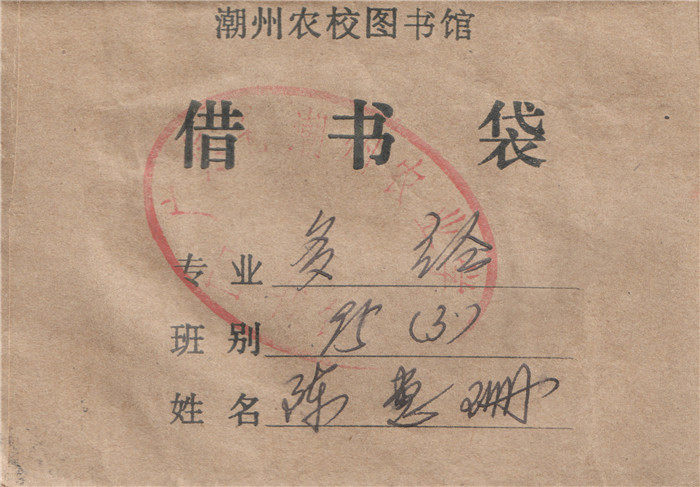 潮州农校图书馆
借书袋
专业 多经
班别 95(3)
姓名 陈慧珊